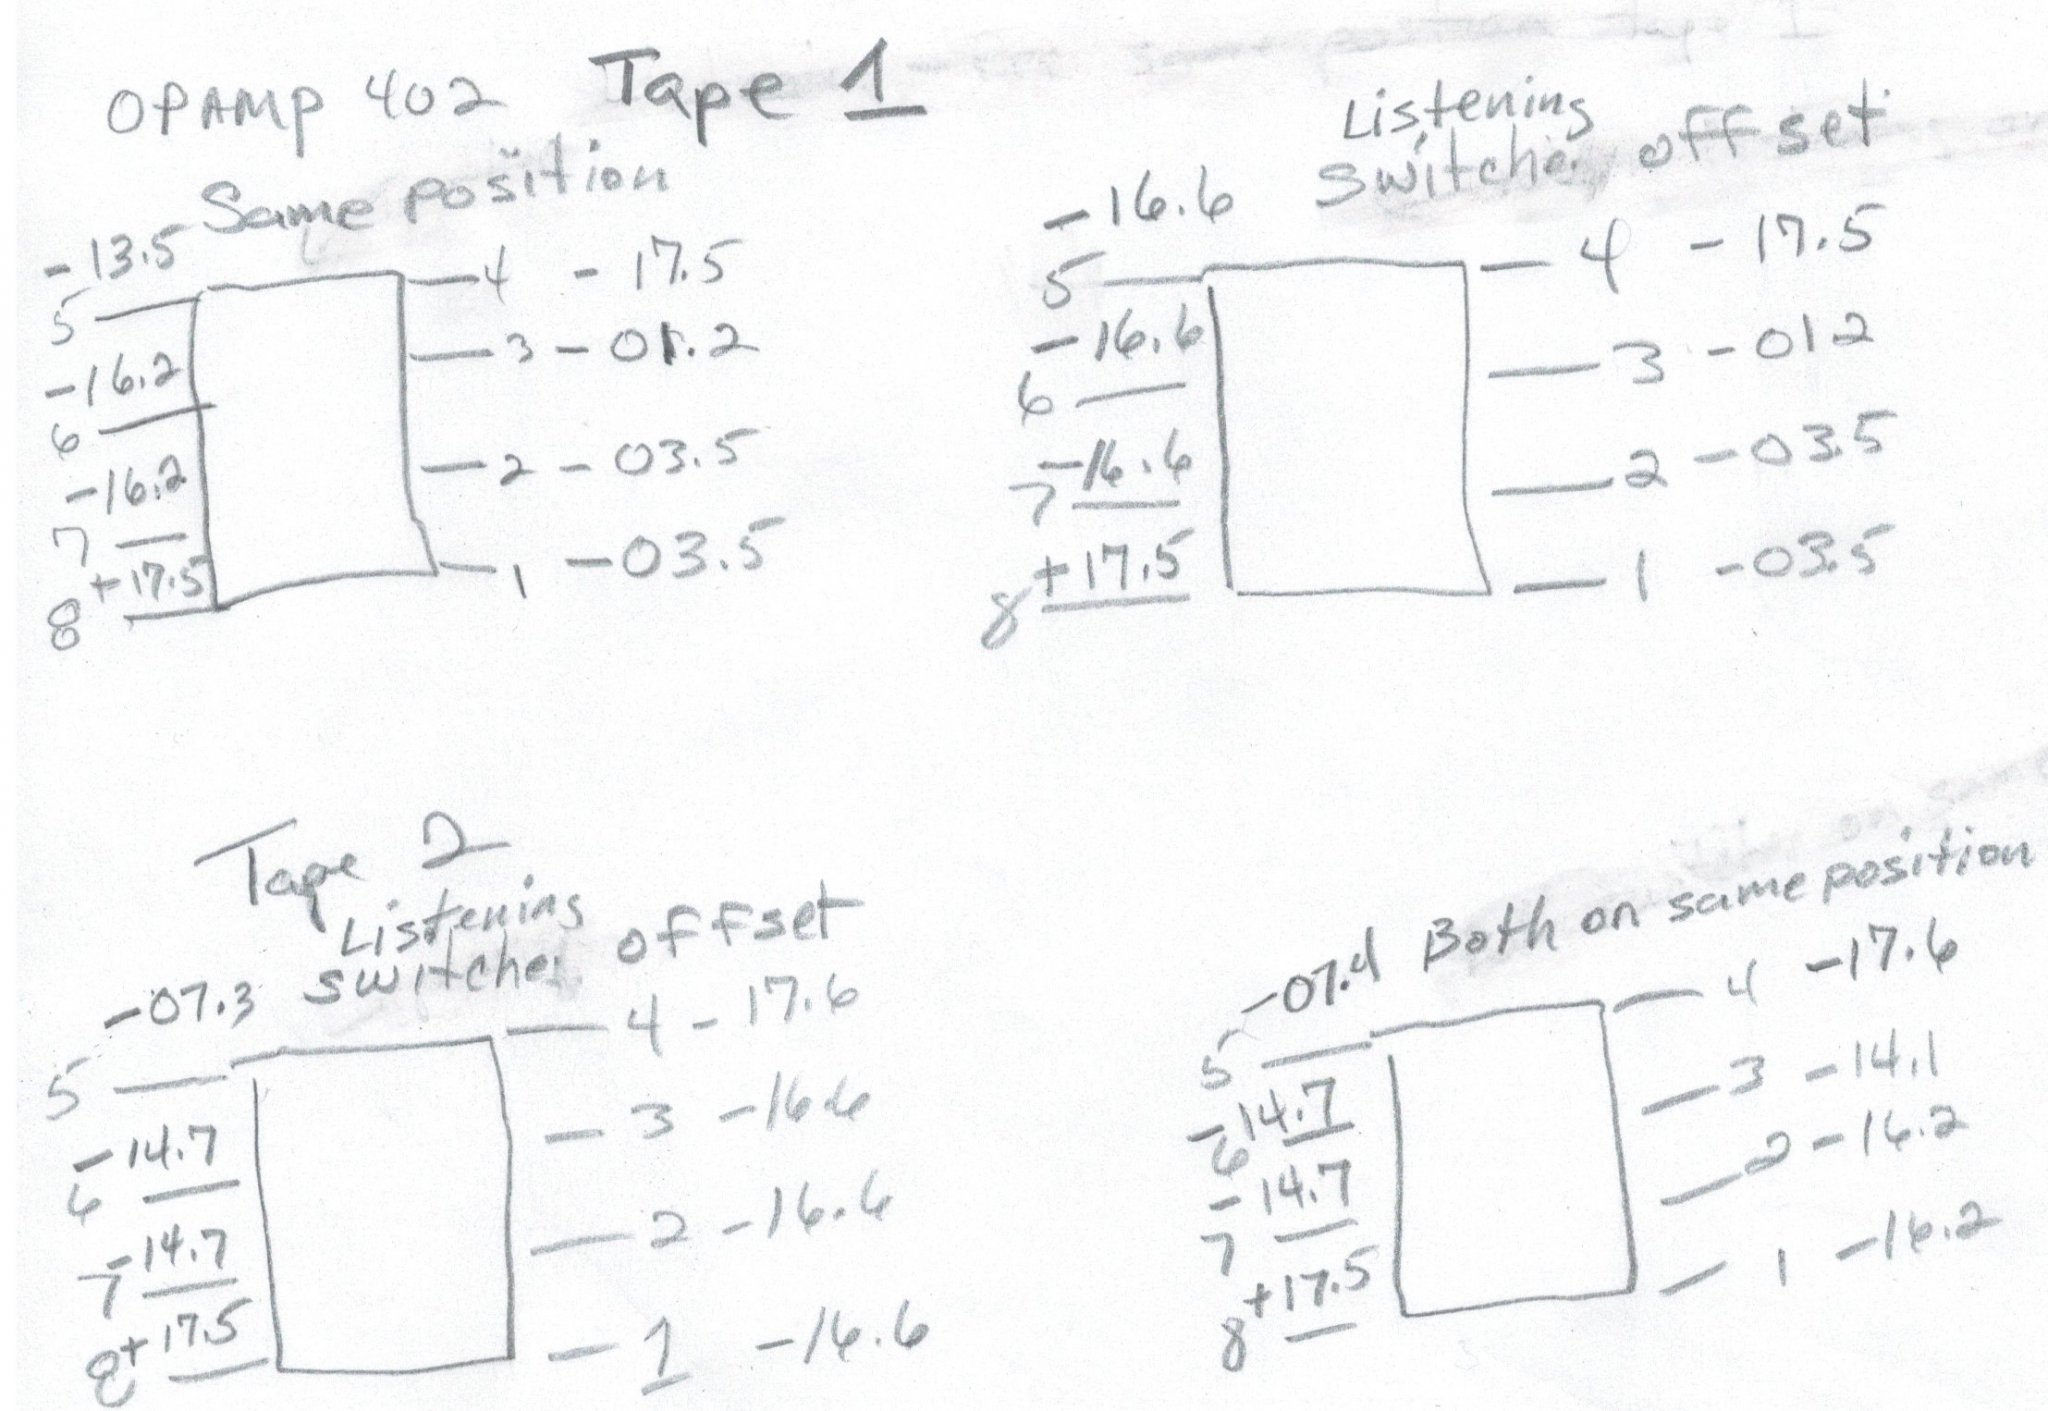 OPAMP 402 Tape 1
Same position
-13.5
5
4 - 17.5
-16.2
6
3 - 01.2
-16.2
7
2 - 03.5
+17.5
8
1 - 03.5
Listening
Switches offset
-16.6
5
4 - 17.5
-16.6
6
3 - 012
-16.6
7
2 - 03.5
+17.5
8
1 - 03.5
Tape 2
Listening
switches offset
-07.3
5
4 - 17.6
-14.7
6
3 - 16.6
-14.7
7
2 - 16.6
+17.5
8
1 - 16.6
Both on same position
-07.4
5
4 - 17.6
-14.7
6
3 - 14.1
-14.7
7
2 - 16.2
+17.5
8
1 - 16.2